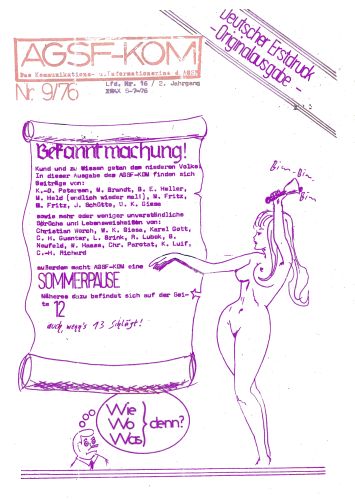 Deutscher Erstdruck
-Originalausgabe-
AGSF-KOM
Das Kommunikations- u. Informationszine d. AGSF
Nr. 9/76
Lfd. Nr. 16 / 2. Jahrgang
5-7-76
Bekanntmachung!
Kund und zu Wissen geben dem niederen Volke:
In dieser Ausgabe des AGSF-KOM finden sich
Beiträge von:
K.-O. Petersen, W. Brandt, B. E. Heller,
M. Held (endlich wieder mal!), W. Fritz,
B. Fritz, J. Schütte, U. K. Giese
sowie mehr oder weniger unverständliche
Sprüche und Lebensweisheiten von:
Christian Worch, W. K. Giesa, Karel Gott,
C. H. Guenter, L. Brink, R. Lubek, B.
Neufeld, W. Haase, Chr. Parotat, K. Luif,
C.-H. Richard
außerdem macht AGSF-KOM eine
SOMMERPAUSE
Näheres dazu befindet sich auf der Sei-
te 12
auch, wenn's 13 schlägt!
Bim..
Bim..
Bim
Wie
Wo
Was
denn?